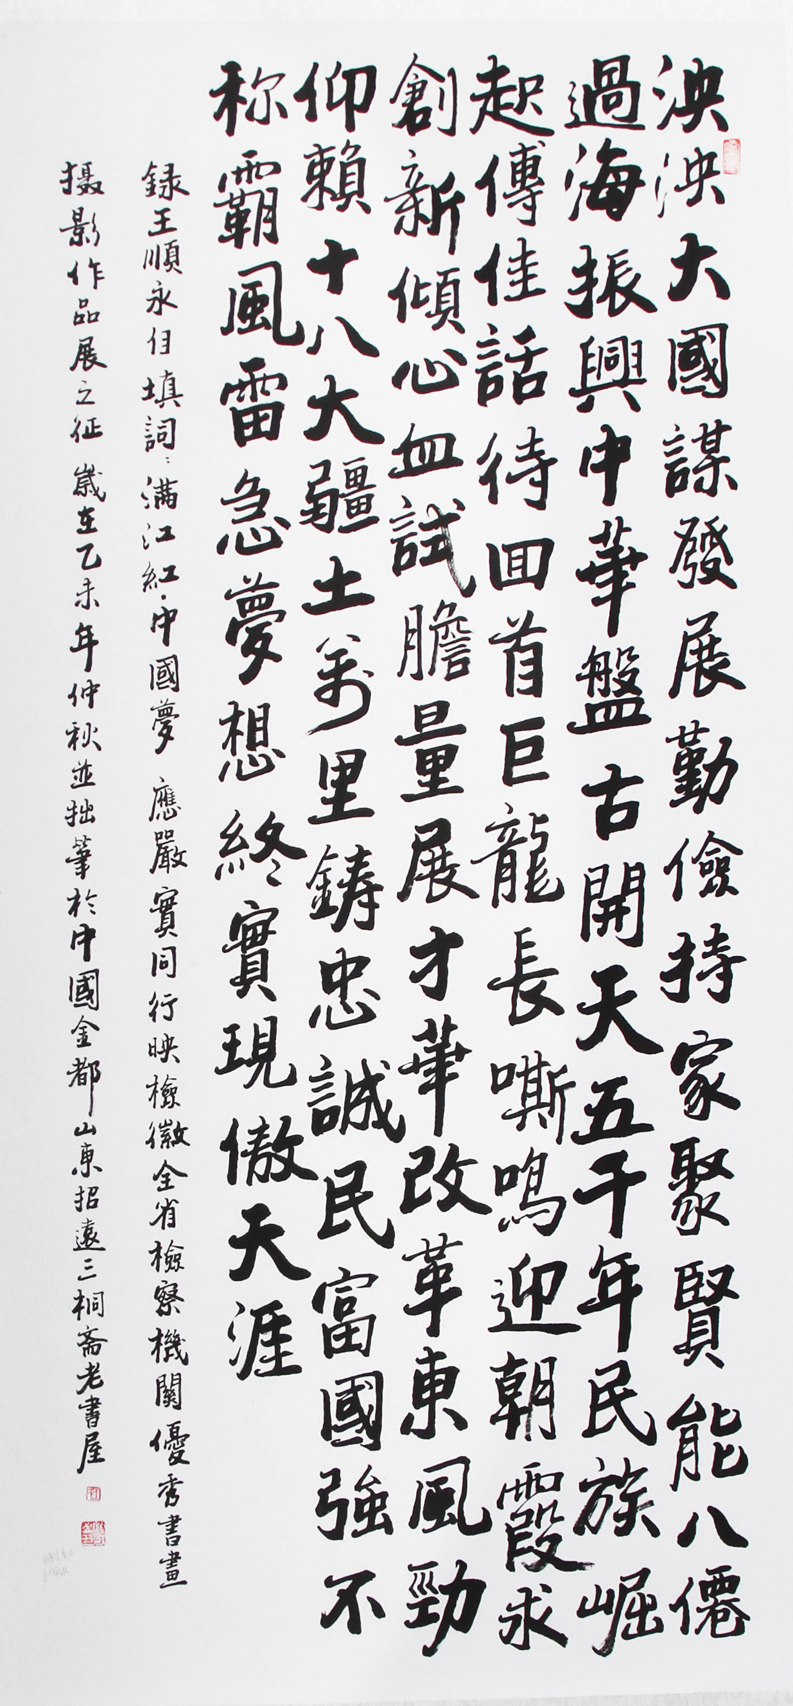 泱泱大國謀發展勤儉持家聚賢能八僊
過海振興中華盤古開天五千年民族崛
起傳佳話待回首巨龍長嘶鳴迎朝霞求
創新傾心血試膽量展才華改革東風勁
仰賴十八大疆土萬里鑄忠誠民富國強不
称霸風雷急夢想終實現傲天涯
録王順永自填詞：满江紅·中國夢 應嚴實同行映檢徽全省檢察機關優秀書畫
摄影作品展之征 歲在乙未年仲秋並拙筆於中國金都山東招遠三桐斋老書屋